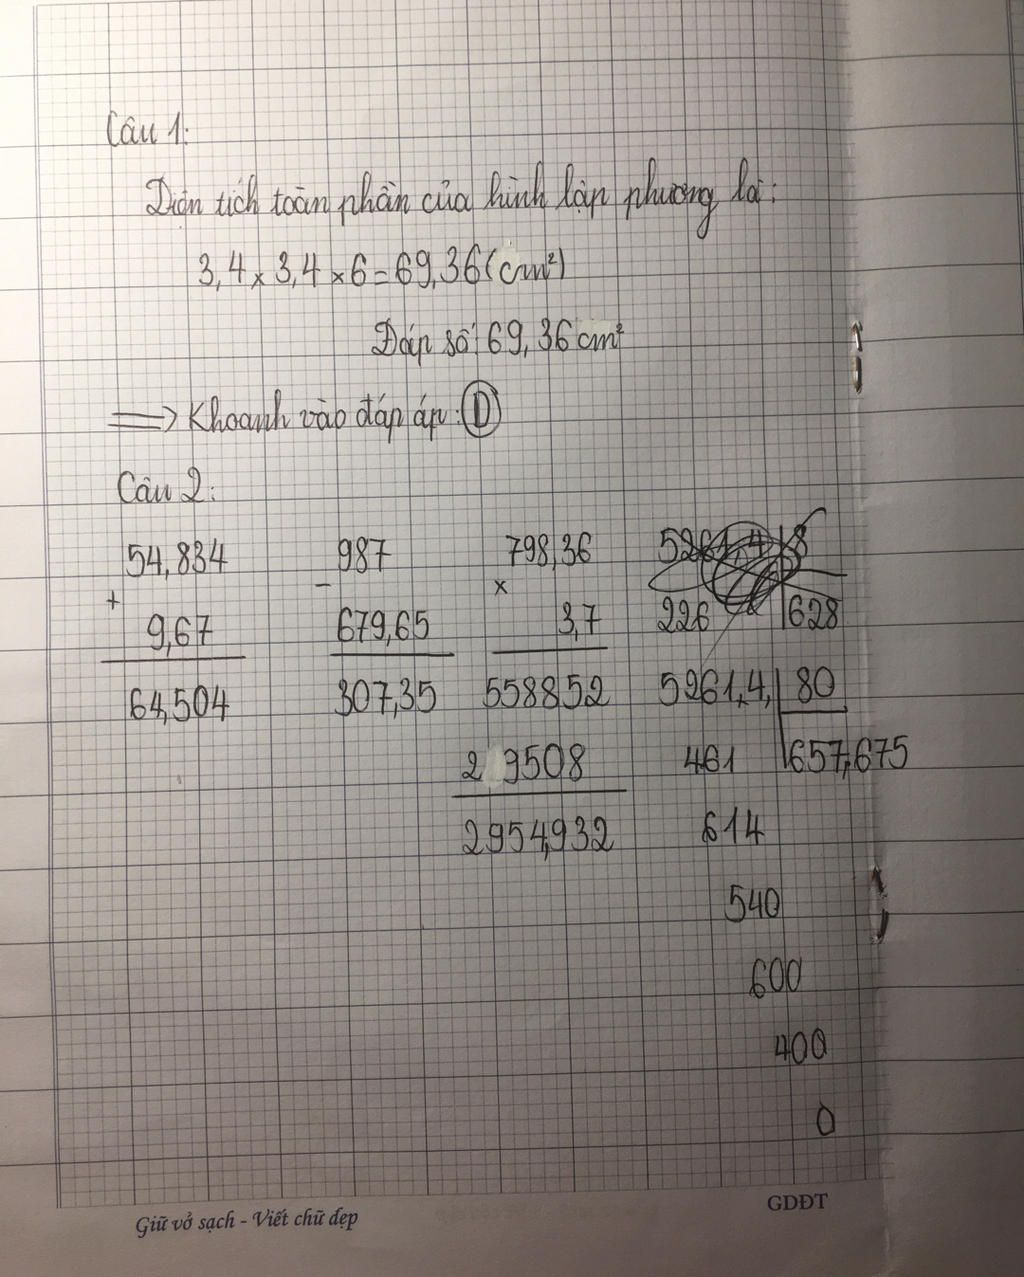 Câu 1:
Diện tích toàn phần của hình lập phương là:
3,4 x 3,4 x 6 = 69,36 (cm²)
Đáp số: 69,36 cm²
=> Khoanh vào đáp áp: D
Câu 2:
54,834 987 798,36 5261,4 8
+ - x
9,67 679,65 3,7 226 628
64,504 307,35 558852 5261,4, 80
2 9508 461 657,675
2954,932 614
540
600
400
0
Giữ vở sạch - Viết chữ đẹp GDĐT